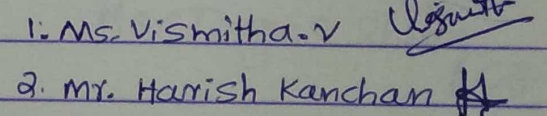 1. Ms. Vismitha.V
2. Mr. Harish Kanchan